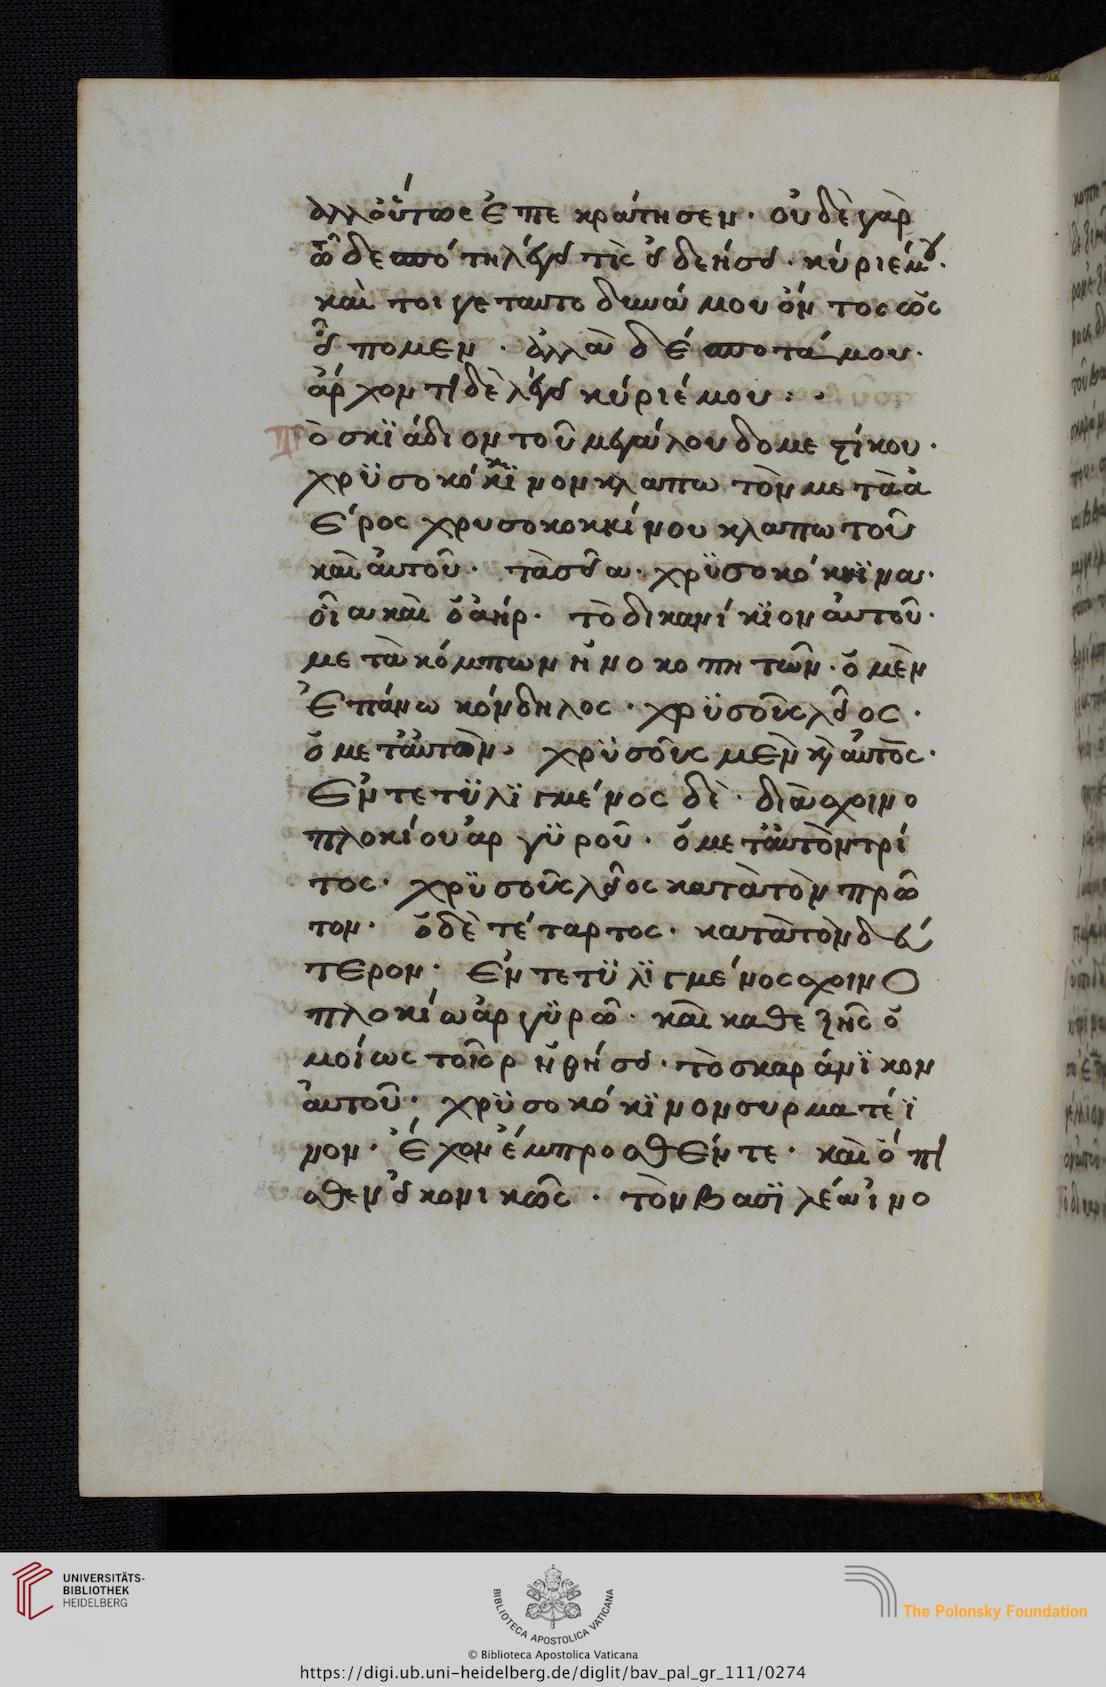 ἀλλ οὕτως ἐπε κράτησεν· οὐδὲ γὰρ
τῶ δεσπότη λέγει τὶς εἰ δεήσει· κύριέ μου·
καὶ τοι γε ταυτο δυνάμου ὄντος ὡς
εἴπομεν· ἀλλὰ δέσποτά μου·
ἄρχοντι δὲ λέγει κύριέ μου:·
Τὸ σκϊάδιον τοῦ μεγάλου δομεστίκου·
χρϋσοκόκκϊνον κλαπωτὸν μετὰ ἀ
έρος χρυσοκοκκίνου κλαπωτοῦ
καὶ αὐτοῦ· τὰ σεῖα· χρϋσοκόκκϊνα·
οἷα καὶ ὁ ἀήρ· τὸ δικανίκϊον αὐτοῦ·
μετὰ κόμπων ἠνοκοπητῶν· ὁ μὲν
ἐπάνω κόνδηλος· χρϋσοῦς λεῖος·
ὁ μετ αὐτὸν· χρϋσοῦς μὲν κ αὐτὸς·
ἐντετϋλϊγμένος δὲ· διὰ σχοινο
πλοκίου ἀργϋροῦ· ὁ μετ αὐτὸν τρί
τος· χρϋσοῦς λεῖος κατὰ τὸν πρῶ
τον· ὁ δὲ τέταρτος· κατὰ τὸν δεύ
τερον· ἐντετϋλϊγμένος σχοινο
πλοκίω ἀργϋρῶ· καὶ καθεξῆς ὁ
μοίως τοῖς ῥηθήσει· τὸ σκαράνϊκον
αὐτοῦ· χρϋσοκόκϊνον συρματέϊ
νον· ἔχον ἔμπροσθέν τε· καὶ ὄπι
σθεν εἰκονικῶς· τὸν βασϊλέα ἱνο
UNIVERSITÄTS-
BIBLIOTHEK
HEIDELBERG
BIBLIOTECA APOSTOLICA VATICANA
The Polonsky Foundation
© Biblioteca Apostolica Vaticana
https://digi.ub.uni-heidelberg.de/diglit/bav_pal_gr_111/0274